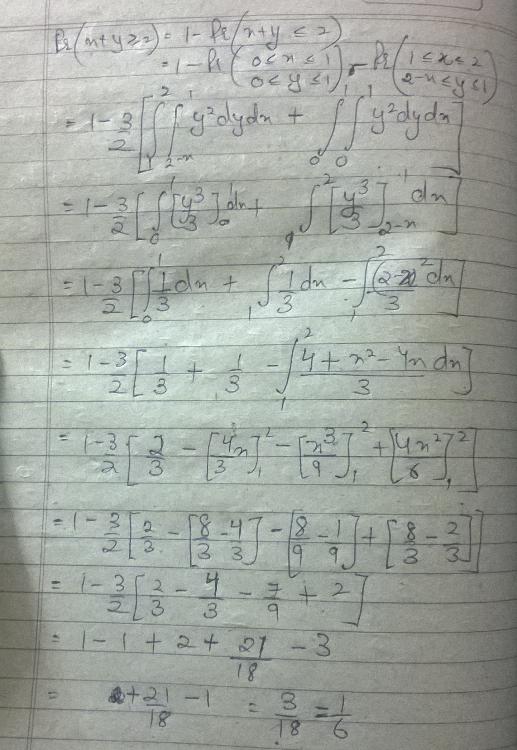 Pr(x+y≥2) = 1-Pr(x+y ≤ 2)
= 1-Pr(0≤x≤1 0≤y≤1) - Pr(1≤x≤2 2-x≤y≤1)
= 1-3/2 [∫_1^2 ∫_{2-x}^1 y²dydx + ∫_0^1 ∫_0^1 y²dydx]
= 1-3/2 [∫_0^1 [y³/3]_0^1 dx + ∫_1^2 [y³/3]_{2-x}^1 dx]
= 1-3/2 [∫_0^1 1/3 dx + ∫_1^2 1/3 dx - ∫_1^2 (2-x)²/3 dx]
= 1-3/2 [1/3 + 1/3 - ∫_1^2 4+x²-4x/3 dx]
= 1-3/2 [2/3 - [4x/3]_1^2 - [x³/9]_1^2 + [4x²/6]_1^2]
= 1-3/2 [2/3 - [8/3 - 4/3] - [8/9 - 1/9] + [8/3 - 2/3]]
= 1-3/2 [2/3 - 4/3 - 7/9 + 2]
= 1-1+2+21/18 -3
= +21/18 -1 = 3/18 = 1/6